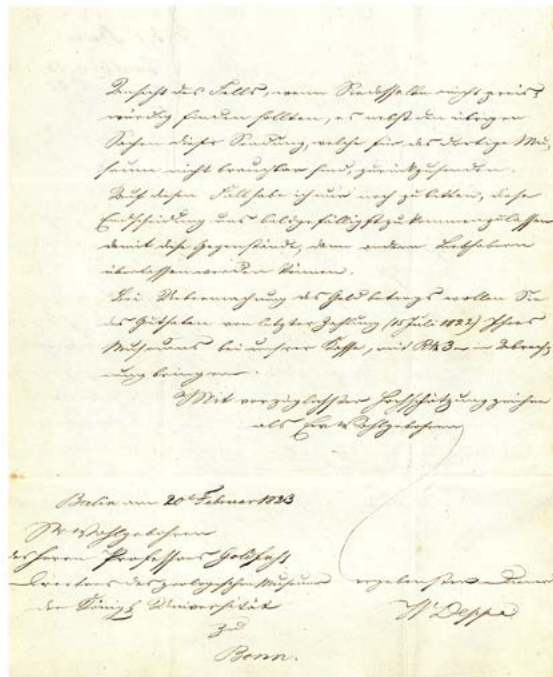 Ansicht des Falls, wenn Dieselben nicht preis-
würdig finden sollten, es nebst den übrigen
Sachen dieser Sendung, welche für das dortige Mu-
seum nicht brauchbar sind, zurückzusenden.
Auf diesen Fall habe ich nur noch zu bitten, diese
Entscheidung uns baldgefälligst zukommen zu lassen
damit diese Gegenstände, dann andern Liebhabern
überlassen werden können.
Bei Uebermachung des Geldbetrags wollen Sie
das Guthaben von letzter Zahlung (15 Juli 1822) Ihres
Museums bei unsrer Kasse, mit 3 in Abrech-
nung bringen.
Mit vorzüglichster Hochschätzung zeichne
als Ew. Wohlgebohren
Berlin am 20t Februar 1823
Sr Wohlgebohren
des Herrn Professors Goldfuß
Directors des zoologischen Museums ergebenster Diener
der Königl Universität W Deppe
zu
Bonn.